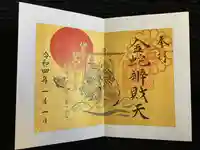 奉拝
金蛇辨財天
令和四年一月一日